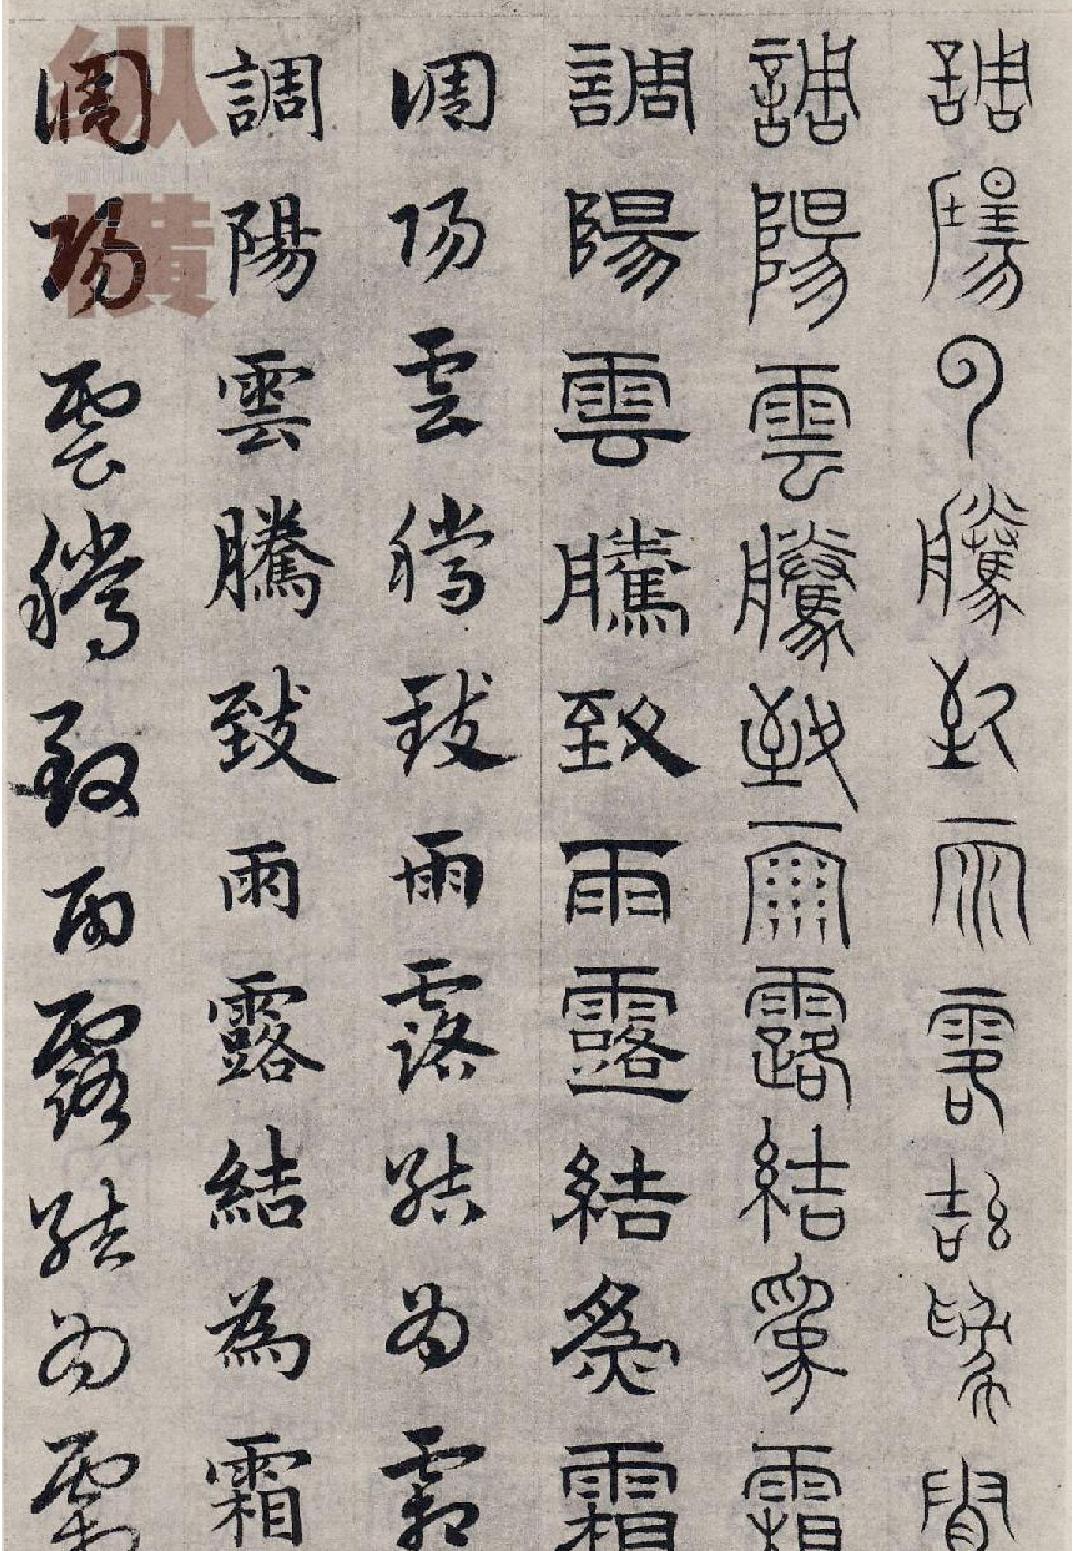 調陽雲騰致雨露結為霜
調陽雲騰致雨露結為霜
調陽雲騰致雨露結為霜
調陽雲騰致雨露結為霜
調陽雲騰致雨露結為霜
調陽雲騰致雨露結為霜
纵横